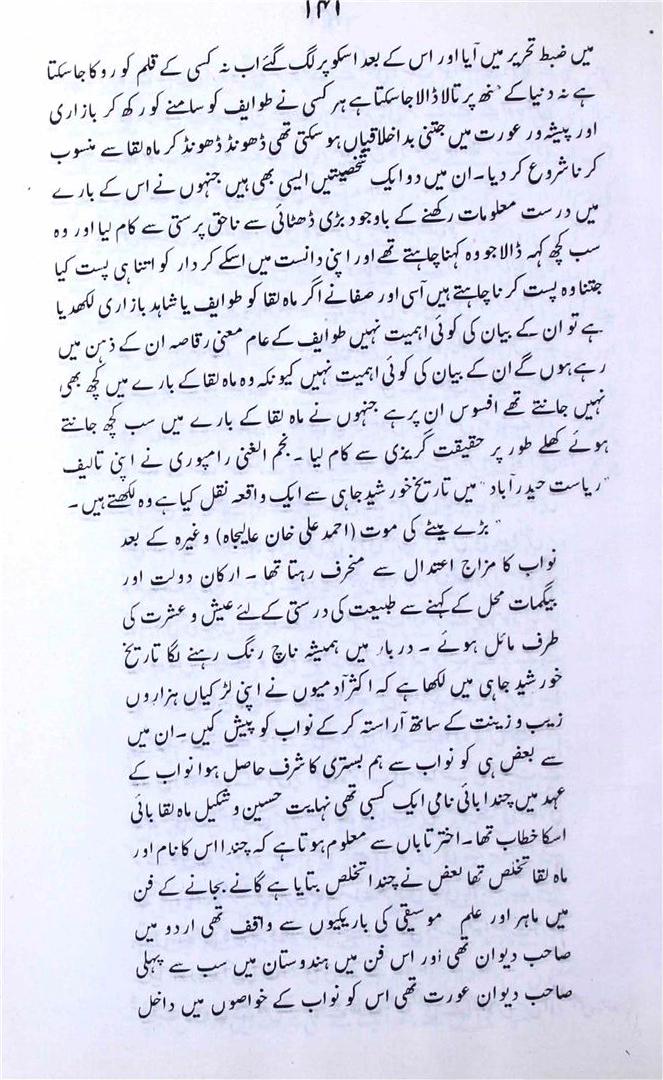 ۱۴۱
میں ضبط تحریر میں آیا اور اس کے بعد اسکو پر لگ گئے اب نہ کسی کے قلم کو روکا جا سکتا
ہے نہ دنیا کے منھ پر تالا ڈالا جا سکتا ہے ہر کسی نے طوایف کو سامنے کو رکھ کر بازاری
اور پیشہ ور عورت میں جتنی بداخلاقیاں ہو سکتی تھی ڈھونڈ ڈھونڈ کر ماہ لقا سے منسوب
کرنا شروع کر دیا۔ ان میں دو ایک شخصیتیں ایسی بھی ہیں جنہوں نے اس کے بارے
میں درست معلومات رکھنے کے باوجود بڑی ڈھٹائی سے ناحق پرستی سے کام لیا اور وہ
سب کچھ کہہ ڈالا جو وہ کہنا چاہتے تھے اور اپنی دانست میں اسکے کردار کو اتنا ہی پست کیا
جتنا وہ پست کرنا چاہتے ہیں آسی اور صفا نے اگر ماہ لقا کو طوایف یا شاہد بازاری لکھدیا
ہے تو ان کے بیان کی کوئی اہمیت نہیں طوایف کے عام معنی رقاصہ ان کے ذہن میں
رہے ہوں گے ان کے بیان کی کوئی اہمیت نہیں کیونکہ وہ ماہ لقا کے بارے میں کچھ بھی
نہیں جانتے تھے افسوس ان پر ہے جنہوں نے ماہ لقا کے بارے میں سب کچھ جانتے
ہوئے کھلے طور پر حقیقت گریزی سے کام لیا ۔ نجم الغنی رامپوری نے اپنی تالیف
"ریاست حیدرآباد" میں تاریخ خورشید جاہی سے ایک واقعہ نقل کیا ہے وہ لکھتے ہیں۔
"بڑے بیٹے کی موت (احمد علی خان عالیجاہ) وغیرہ کے بعد
نواب کا مزاج اعتدال سے منحرف رہتا تھا ۔ ارکان دولت اور
بیگمات محل کے کہنے سے طبیعت کی درستی کے لئے عیش و عشرت کی
طرف مائل ہوئے ۔ دربار میں ہمیشہ ناچ رنگ رہنے لگا تاریخ
خورشید جاہی میں لکھا ہے کہ اکثر آدمیوں نے اپنی لڑکیاں ہزاروں
زیب و زینت کے ساتھ آراستہ کر کے نواب کو پیش کیں ۔ ان میں
سے بعض ہی کو نواب سے ہم بستری کا شرف حاصل ہوا نواب کے
عہد میں چندا بائی نامی ایک کسبی تھی نہایت حسین و شکیل ماہ لقا بائی
اسکا خطاب تھا۔ اختر تاباں سے معلوم ہوتا ہے کہ چندا اس کا نام اور
ماہ لقا تخلص تھا بعض نے چندا تخلص بتایا ہے گانے بجانے کے فن
میں ماہر اور علم موسیقی کی باریکیوں سے واقف تھی اردو میں
صاحب دیوان تھی اور اس فن میں ہندوستان میں سب سے پہلی
صاحب دیوان عورت تھی اس کو نواب کے خواصوں میں داخل